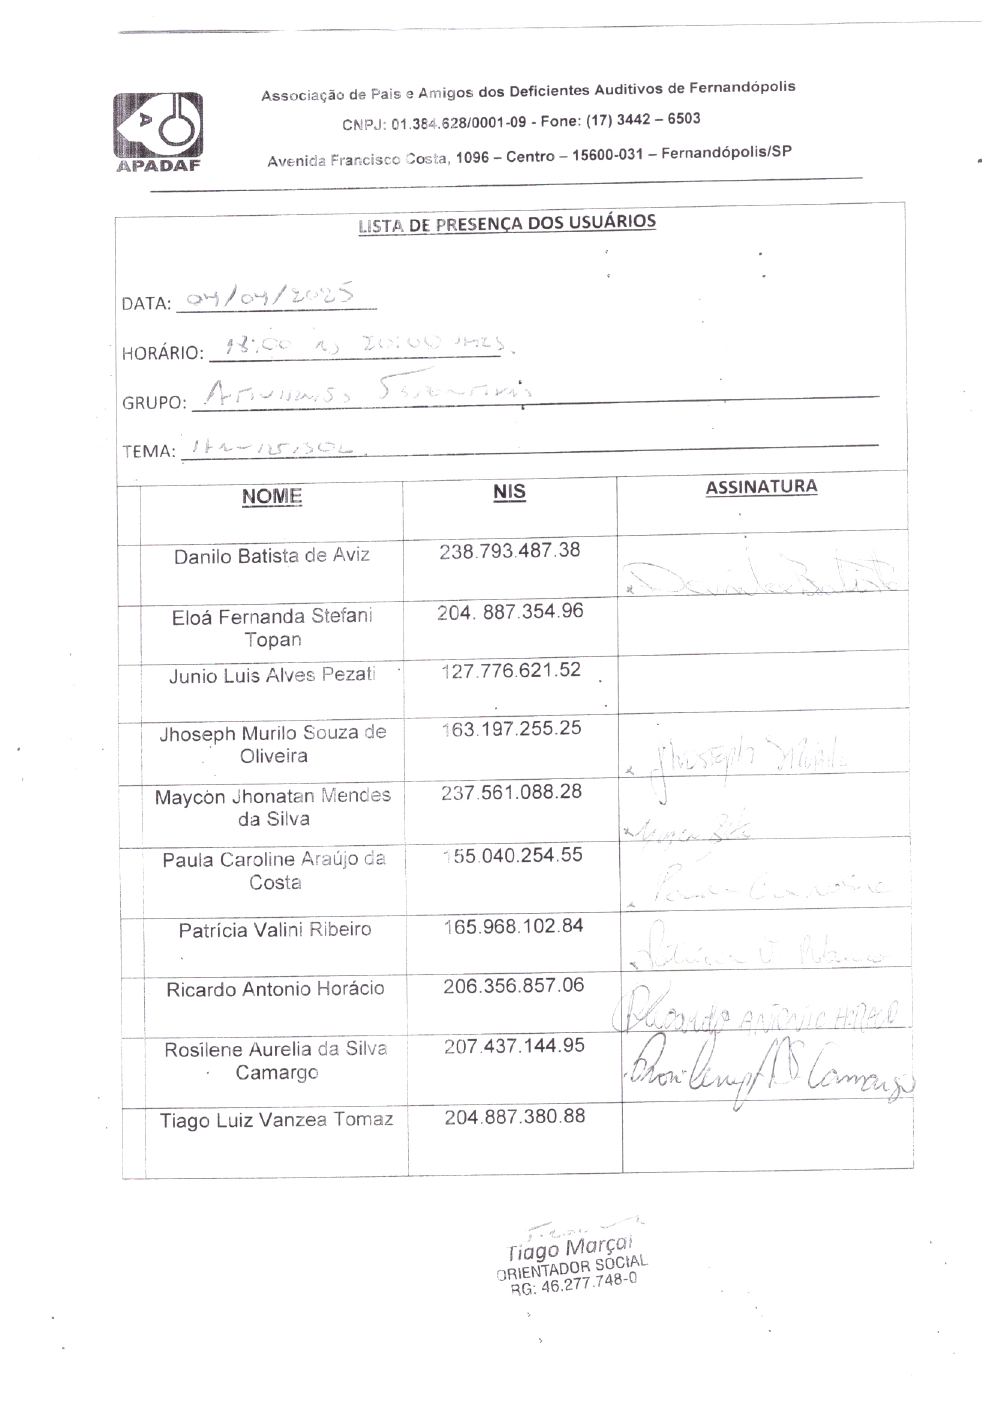 APADAF
Associação de Pais e Amigos dos Deficientes Auditivos de Fernandópolis
CNPJ: 01.384.628/0001-09 - Fone: (17) 3442 – 6503
Avenida Francisco Costa, 1096 – Centro – 15600-031 – Fernandópolis/SP
LISTA DE PRESENÇA DOS USUÁRIOS
DATA: 04/04/2025
HORÁRIO: 18:00 às 20:00 hrs.
GRUPO:
TEMA:
NOME NIS ASSINATURA
Danilo Batista de Aviz 238.793.487.38 Danilo Batista
Eloá Fernanda Stefani 204. 887.354.96
Topan
Junio Luis Alves Pezati 127.776.621.52
Jhoseph Murilo Souza de 163.197.255.25 Jhoseph
Oliveira
Maycon Jhonatan Mendes 237.561.088.28
da Silva
Paula Caroline Araújo da 155.040.254.55 Paula Caroline
Costa
Patrícia Valini Ribeiro 165.968.102.84
Ricardo Antonio Horácio 206.356.857.06 Ricardo ANTONIO HORACIO
Rosilene Aurelia da Silva 207.437.144.95 Camargo
Camargo
Tiago Luiz Vanzea Tomaz 204.887.380.88
Tiago Marçal
ORIENTADOR SOCIAL
RG: 46.277.748-0